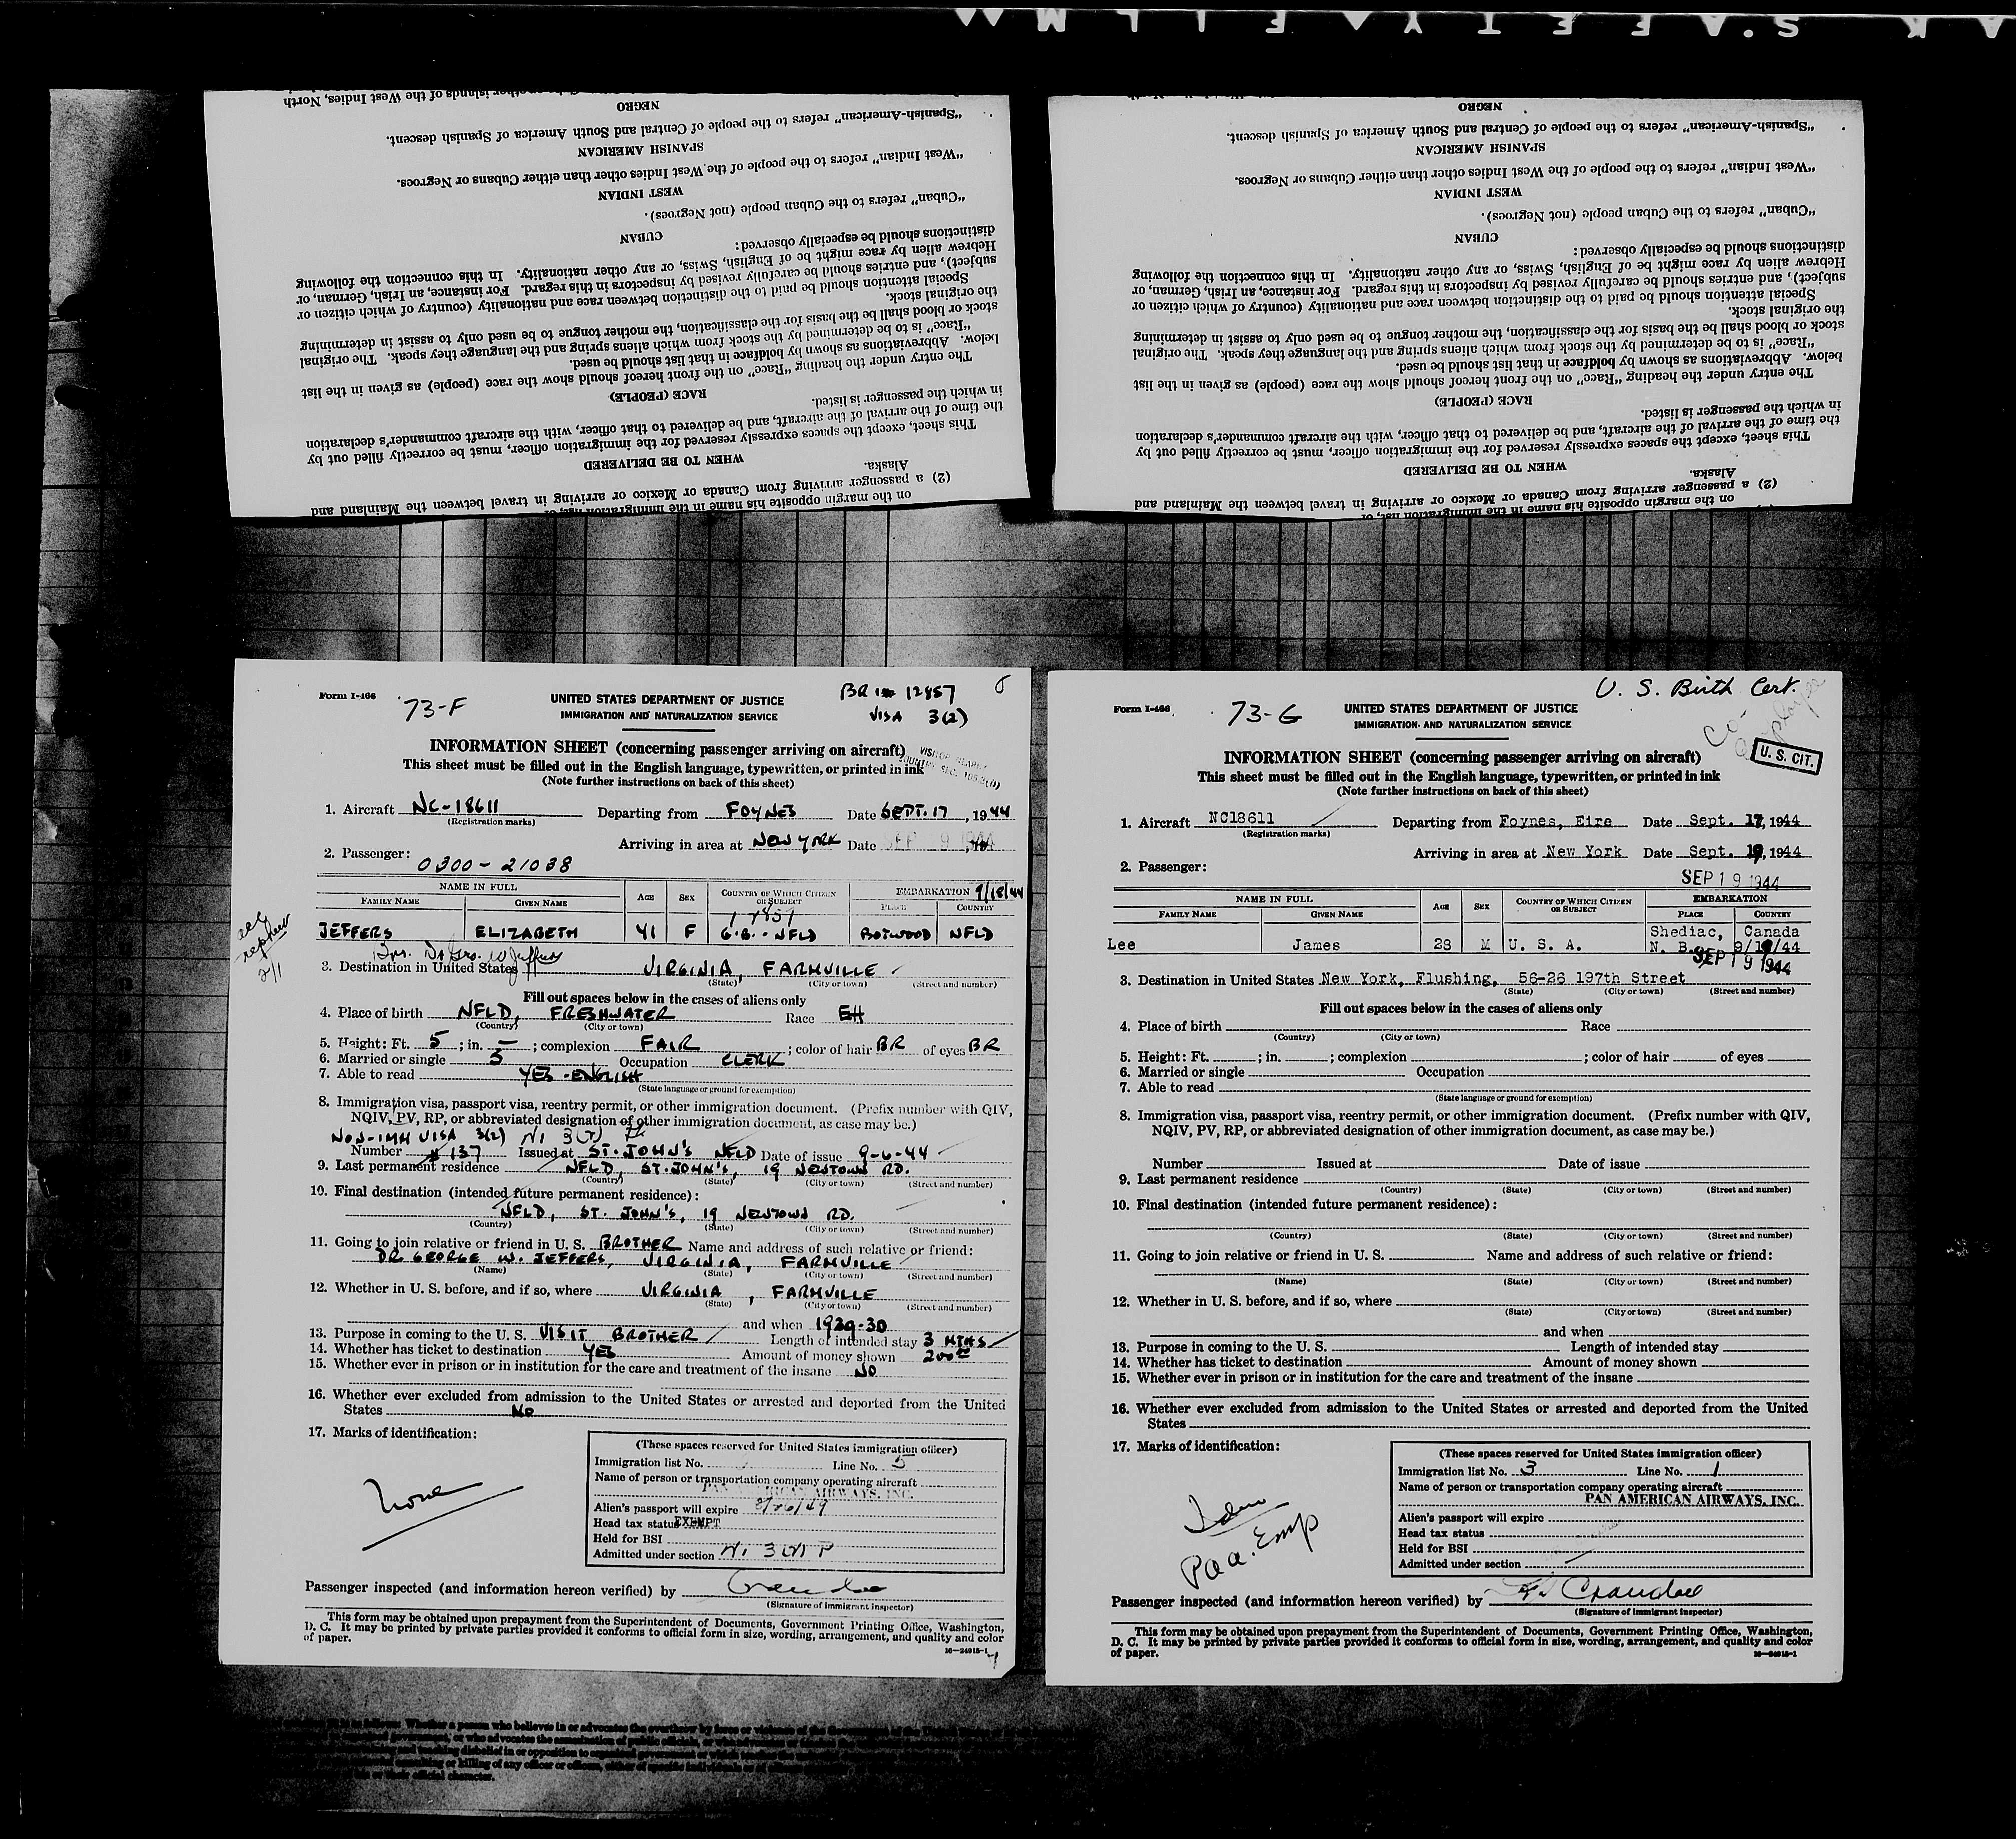 NEGRO
"Spanish-American" refers to the people of Central and South America of Spanish descent.
SPANISH AMERICAN
"West Indian" refers to the people of the West Indies other than either Cubans or Negroes.
WEST INDIAN
"Cuban" refers to the Cuban people (not Negroes).
CUBAN
distinctions should be especially observed:
Hebrew alien by race might be of English, Swiss, or any other nationality. In this connection the following
subject), and entries should be carefully revised by inspectors in this regard. For instance, an Irish, German, or
Special attention should be paid to the distinction between race and nationality (country of which citizen or
the original stock.
stock or blood shall be the basis for the classification, the mother tongue to be used only to assist in determining
"Race" is to be determined by the stock from which aliens spring and the language they speak. The original
below. Abbreviations as shown by boldface in that list should be used.
The entry under the heading "Race" on the front hereof should show the race (people) as given in the list
RACE (PEOPLE)
in which the passenger is listed.
the time of the arrival of the aircraft, and be delivered to that officer, with the aircraft commander's declaration
This sheet, except the spaces expressly reserved for the immigration officer, must be correctly filled out by
WHEN TO BE DELIVERED
Alaska.
(2) a passenger arriving from Canada or Mexico or arriving in travel between the Mainland and
on the margin opposite his name in the immigration list, or
NEGRO
"Spanish-American" refers to the people of Central and South America of Spanish descent.
SPANISH AMERICAN
"West Indian" refers to the people of the West Indies other than either Cubans or Negroes.
WEST INDIAN
"Cuban" refers to the Cuban people (not Negroes).
CUBAN
distinctions should be especially observed:
Hebrew alien by race might be of English, Swiss, or any other nationality. In this connection the following
subject), and entries should be carefully revised by inspectors in this regard. For instance, an Irish, German, or
Special attention should be paid to the distinction between race and nationality (country of which citizen or
the original stock.
stock or blood shall be the basis for the classification, the mother tongue to be used only to assist in determining
"Race" is to be determined by the stock from which aliens spring and the language they speak. The original
below. Abbreviations as shown by boldface in that list should be used.
The entry under the heading "Race" on the front hereof should show the race (people) as given in the list
RACE (PEOPLE)
in which the passenger is listed.
the time of the arrival of the aircraft, and be delivered to that officer, with the aircraft commander's declaration
This sheet, except the spaces expressly reserved for the immigration officer, must be correctly filled out by
WHEN TO BE DELIVERED
Alaska.
(2) a passenger arriving from Canada or Mexico or arriving in travel between the Mainland and
on the margin opposite his name in the immigration list, or
Form I-466 73-F
UNITED STATES DEPARTMENT OF JUSTICE
IMMIGRATION AND NATURALIZATION SERVICE
12857
VISA 3(2)
INFORMATION SHEET (concerning passenger arriving on aircraft)
This sheet must be filled out in the English language, typewritten, or printed in ink
(Note further instructions on back of this sheet)
1. Aircraft NC-18611 Departing from FOYNES Date SEPT. 17, 1944
(Registration marks)
Arriving in area at NEW YORK Date SEP 19 1944
2. Passenger: 0300-21038
NAME IN FULL AGE SEX COUNTRY OF WHICH CITIZEN OR SUBJECT EMBARKATION 9/18/44
FAMILY NAME GIVEN NAME PLACE COUNTRY
JEFFERS ELIZABETH 41 F G.B. - NFLD BOTWOOD NFLD
Bro. Dr Geo. W Jeffers
3. Destination in United States VIRGINIA, FARMVILLE
(State) (City or town) (Street and number)
Fill out spaces below in the cases of aliens only
4. Place of birth NFLD, FRESHWATER Race EH
(Country) (City or town)
5. Height: Ft. 5 ; in. - ; complexion FAIR ; color of hair BR of eyes BR
6. Married or single S Occupation CLERK
7. Able to read YES - ENGLISH
(State language or ground for exemption)
8. Immigration visa, passport visa, reentry permit, or other immigration document. (Prefix number with QIV,
NQIV, PV, RP, or abbreviated designation of other immigration document, as case may be.)
NON-IMM VISA 3(2)
Number # 137 Issued at ST. JOHN'S NFLD Date of issue 9-6-44
9. Last permanent residence NFLD, ST. JOHN'S, 19 NEWTOWN RD.
(Country) (State) (City or town) (Street and number)
10. Final destination (intended future permanent residence):
NFLD, ST. JOHN'S, 19 NEWTOWN RD.
(Country) (State) (City or town) (Street and number)
11. Going to join relative or friend in U. S. BROTHER Name and address of such relative or friend:
DR. GEORGE W. JEFFERS, VIRGINIA, FARMVILLE
(Name) (State) (City or town) (Street and number)
12. Whether in U. S. before, and if so, where VIRGINIA, FARMVILLE
(State) (City or town) (Street and number)
and when 1929-30
13. Purpose in coming to the U. S. VISIT BROTHER Length of intended stay 3 MTHS
14. Whether has ticket to destination YES Amount of money shown
15. Whether ever in prison or in institution for the care and treatment of the insane NO
16. Whether ever excluded from admission to the United States or arrested and deported from the United
States NO
17. Marks of identification:
None
(These spaces reserved for United States immigration officer)
Immigration list No. Line No. 5
Name of person or transportation company operating aircraft
PAN AMERICAN AIRWAYS, INC.
Alien's passport will expire 8/26/49
Head tax status EXEMPT
Held for BSI
Admitted under section
Passenger inspected (and information hereon verified) by
(Signature of immigrant inspector)
This form may be obtained upon prepayment from the Superintendent of Documents, Government Printing Office, Washington,
D. C. It may be printed by private parties provided it conforms to official form in size, wording, arrangement, and quality and color
of paper.
16-24915-1
Form I-466 73-G
U. S. Birth Cert.
UNITED STATES DEPARTMENT OF JUSTICE
IMMIGRATION AND NATURALIZATION SERVICE
U. S. CIT.
INFORMATION SHEET (concerning passenger arriving on aircraft)
This sheet must be filled out in the English language, typewritten, or printed in ink
(Note further instructions on back of this sheet)
1. Aircraft NC18611 Departing from Foynes, Eire Date Sept. 17, 1944
(Registration marks)
Arriving in area at New York Date Sept. 19, 1944
2. Passenger:
SEP 19 1944
NAME IN FULL AGE SEX COUNTRY OF WHICH CITIZEN OR SUBJECT EMBARKATION
FAMILY NAME GIVEN NAME PLACE COUNTRY
Lee James 28 M U. S. A. Shediac, N. B. Canada
SEP 19 1944
3. Destination in United States New York, Flushing, 56-26 197th Street
(State) (City or town) (Street and number)
Fill out spaces below in the cases of aliens only
4. Place of birth Race
(Country) (City or town)
5. Height: Ft. ; in. ; complexion ; color of hair of eyes
6. Married or single Occupation
7. Able to read
(State language or ground for exemption)
8. Immigration visa, passport visa, reentry permit, or other immigration document. (Prefix number with QIV,
NQIV, PV, RP, or abbreviated designation of other immigration document, as case may be.)
Number Issued at Date of issue
9. Last permanent residence
(Country) (State) (City or town) (Street and number)
10. Final destination (intended future permanent residence):
(Country) (State) (City or town) (Street and number)
11. Going to join relative or friend in U. S. Name and address of such relative or friend:
(Name) (State) (City or town) (Street and number)
12. Whether in U. S. before, and if so, where
(State) (City or town) (Street and number)
and when
13. Purpose in coming to the U. S. Length of intended stay
14. Whether has ticket to destination Amount of money shown
15. Whether ever in prison or in institution for the care and treatment of the insane
16. Whether ever excluded from admission to the United States or arrested and deported from the United
States
17. Marks of identification:
Paa. Emp
(These spaces reserved for United States immigration officer)
Immigration list No. 3 Line No. 1
Name of person or transportation company operating aircraft
PAN AMERICAN AIRWAYS, INC.
Alien's passport will expire
Head tax status
Held for BSI
Admitted under section
Passenger inspected (and information hereon verified) by Crandall
(Signature of immigrant inspector)
This form may be obtained upon prepayment from the Superintendent of Documents, Government Printing Office, Washington,
D. C. It may be printed by private parties provided it conforms to official form in size, wording, arrangement, and quality and color
of paper.
16-24915-1